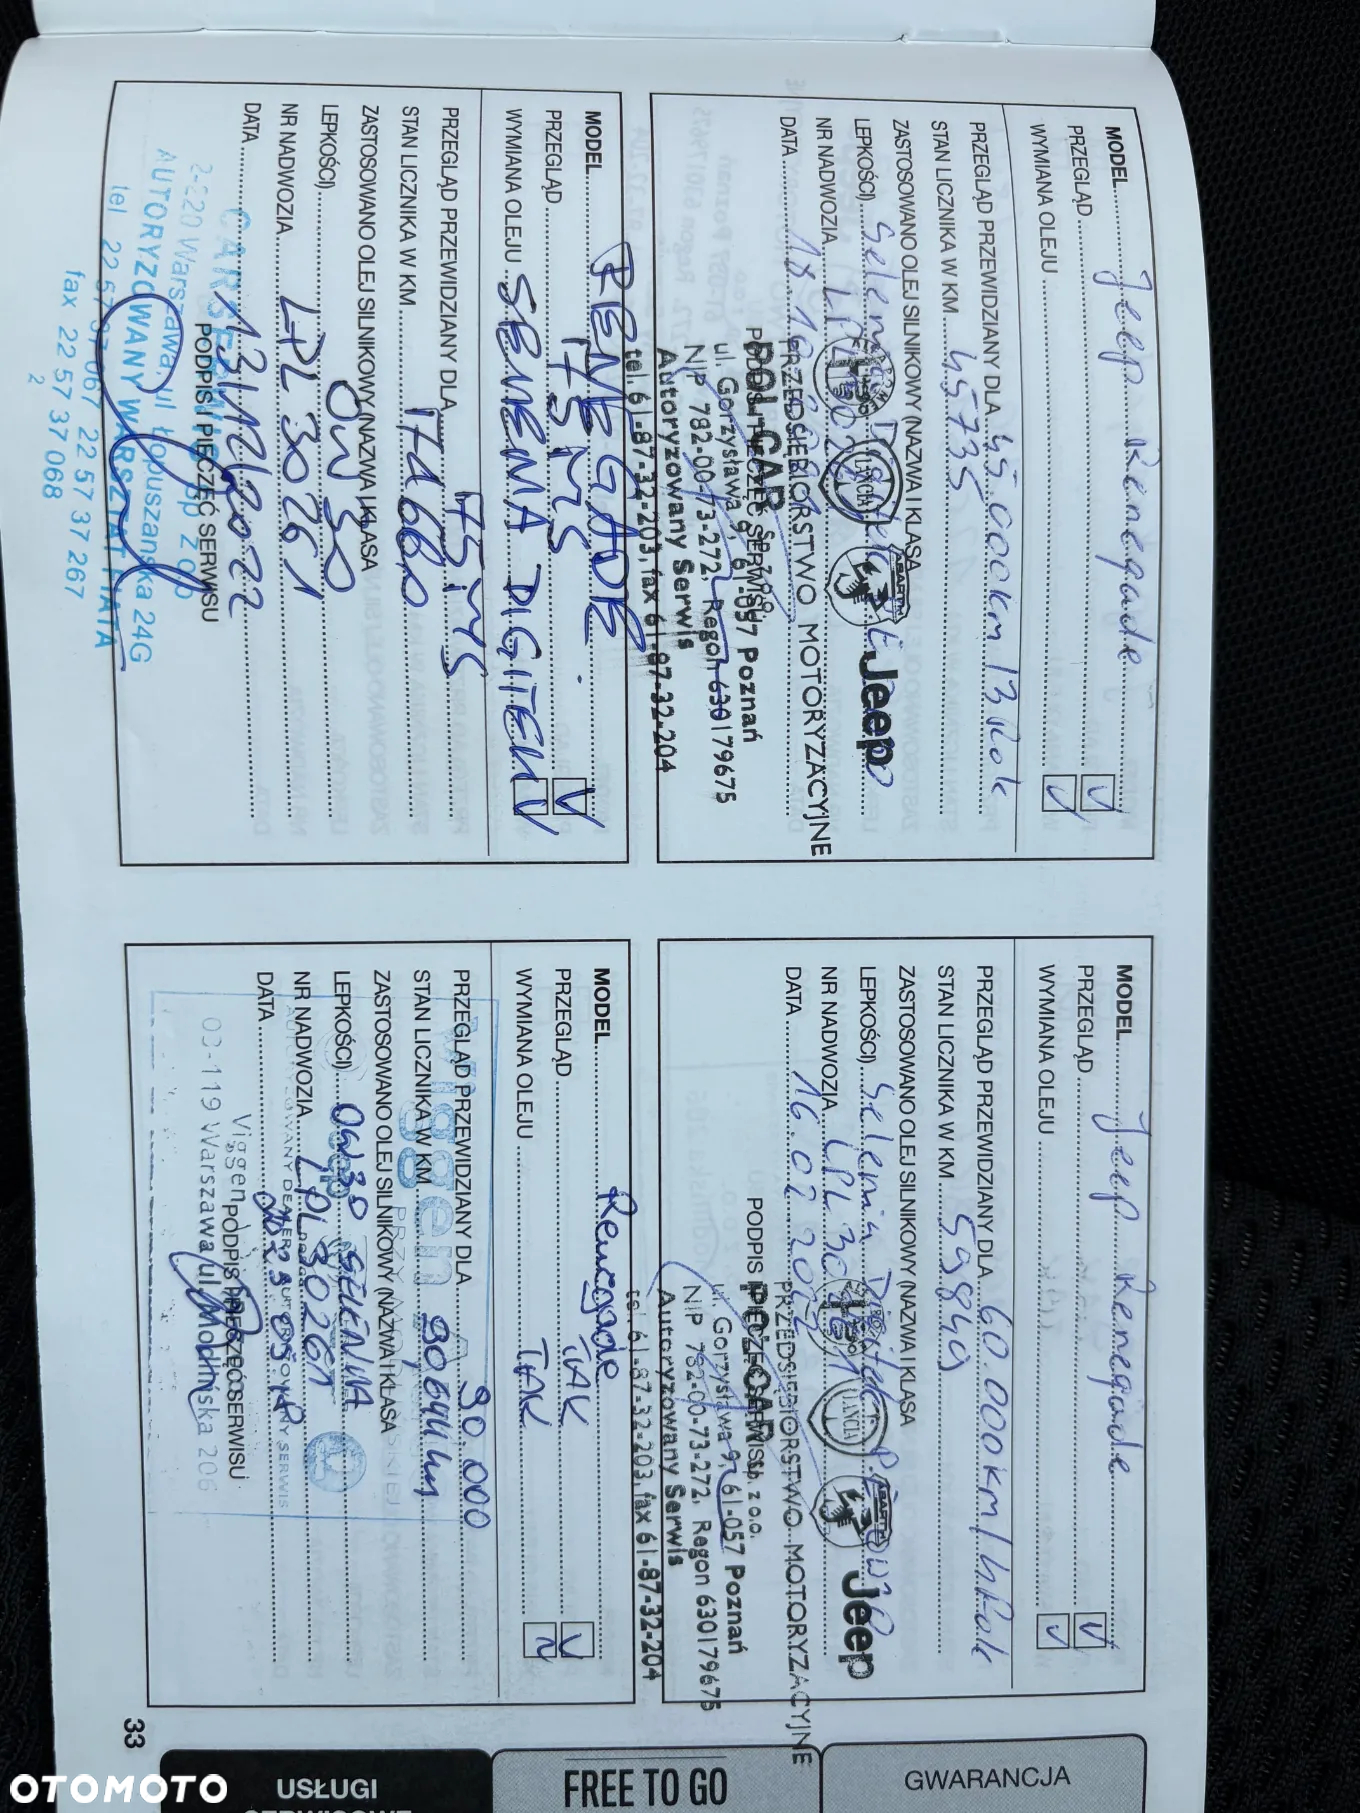 MODEL Jeep Renegade
PRZEGLĄD V
WYMIANA OLEJU V
PRZEGLĄD PRZEWIDZIANY DLA 45.000km / 3 Rok
STAN LICZNIKA W KM 45735
ZASTOSOWANO OLEJ SILNIKOWY (NAZWA I KLASA
LEPKOŚCI) Selenia
NR NADWOZIA
DATA
Jeep
PRZEDSIĘBIORSTWO MOTORYZACYJNE
POL-CAR Sp. z o.o.
ul. Gorzysława 9, 61-057 Poznań
NIP 782-00-73-272, Regon 630179675
Autoryzowany Serwis
tel. 61-87-32-203, fax 61-87-32-204
MODEL Jeep Renegade
PRZEGLĄD V
WYMIANA OLEJU V
PRZEGLĄD PRZEWIDZIANY DLA 60.000km / 4 Rok
STAN LICZNIKA W KM 59849
ZASTOSOWANO OLEJ SILNIKOWY (NAZWA I KLASA
LEPKOŚCI) Selenia
NR NADWOZIA
DATA 16.02.2022
LANCIA ABARTH Jeep
PODPIS I PIECZĘĆ SERWISU
PRZEDSIĘBIORSTWO MOTORYZACYJNE
POL-CAR Sp. z o.o.
ul. Gorzysława 9, 61-057 Poznań
NIP 782-00-73-272, Regon 630179675
Autoryzowany Serwis
tel. 61-87-32-203, fax 61-87-32-204
MODEL RENEGADE
PRZEGLĄD 75 MS V
WYMIANA OLEJU SELENIA DIGITEK V
PRZEGLĄD PRZEWIDZIANY DLA 75 MS
STAN LICZNIKA W KM
ZASTOSOWANO OLEJ SILNIKOWY (NAZWA I KLASA
LEPKOŚCI) 0W30
NR NADWOZIA LPL 30261
DATA 13/12/2022
PODPIS I PIECZĘĆ SERWISU
Warszawa, ul. Łopuszańska 24G
AUTORYZOWANY WARSZTAT FIATA
tel 22 57 37 067 22 57 37 267
fax 22 57 37 068
2
MODEL Renegade
PRZEGLĄD TAK V
WYMIANA OLEJU TAK
PRZEGLĄD PRZEWIDZIANY DLA 90.000
STAN LICZNIKA W KM
ZASTOSOWANO OLEJ SILNIKOWY (NAZWA I KLASA
LEPKOŚCI) 0W30 SELENIA
NR NADWOZIA LPL30261
DATA
PODPIS I PIECZĘĆ SERWISU
Viggen
AUTORYZOWANY DEALER I AUTORYZOWANY SERWIS
Viggen
03-119 Warszawa ul. Modlińska 206
33
USŁUGI
SERWISOWE
FREE TO GO
GWARANCJA
OTOMOTO